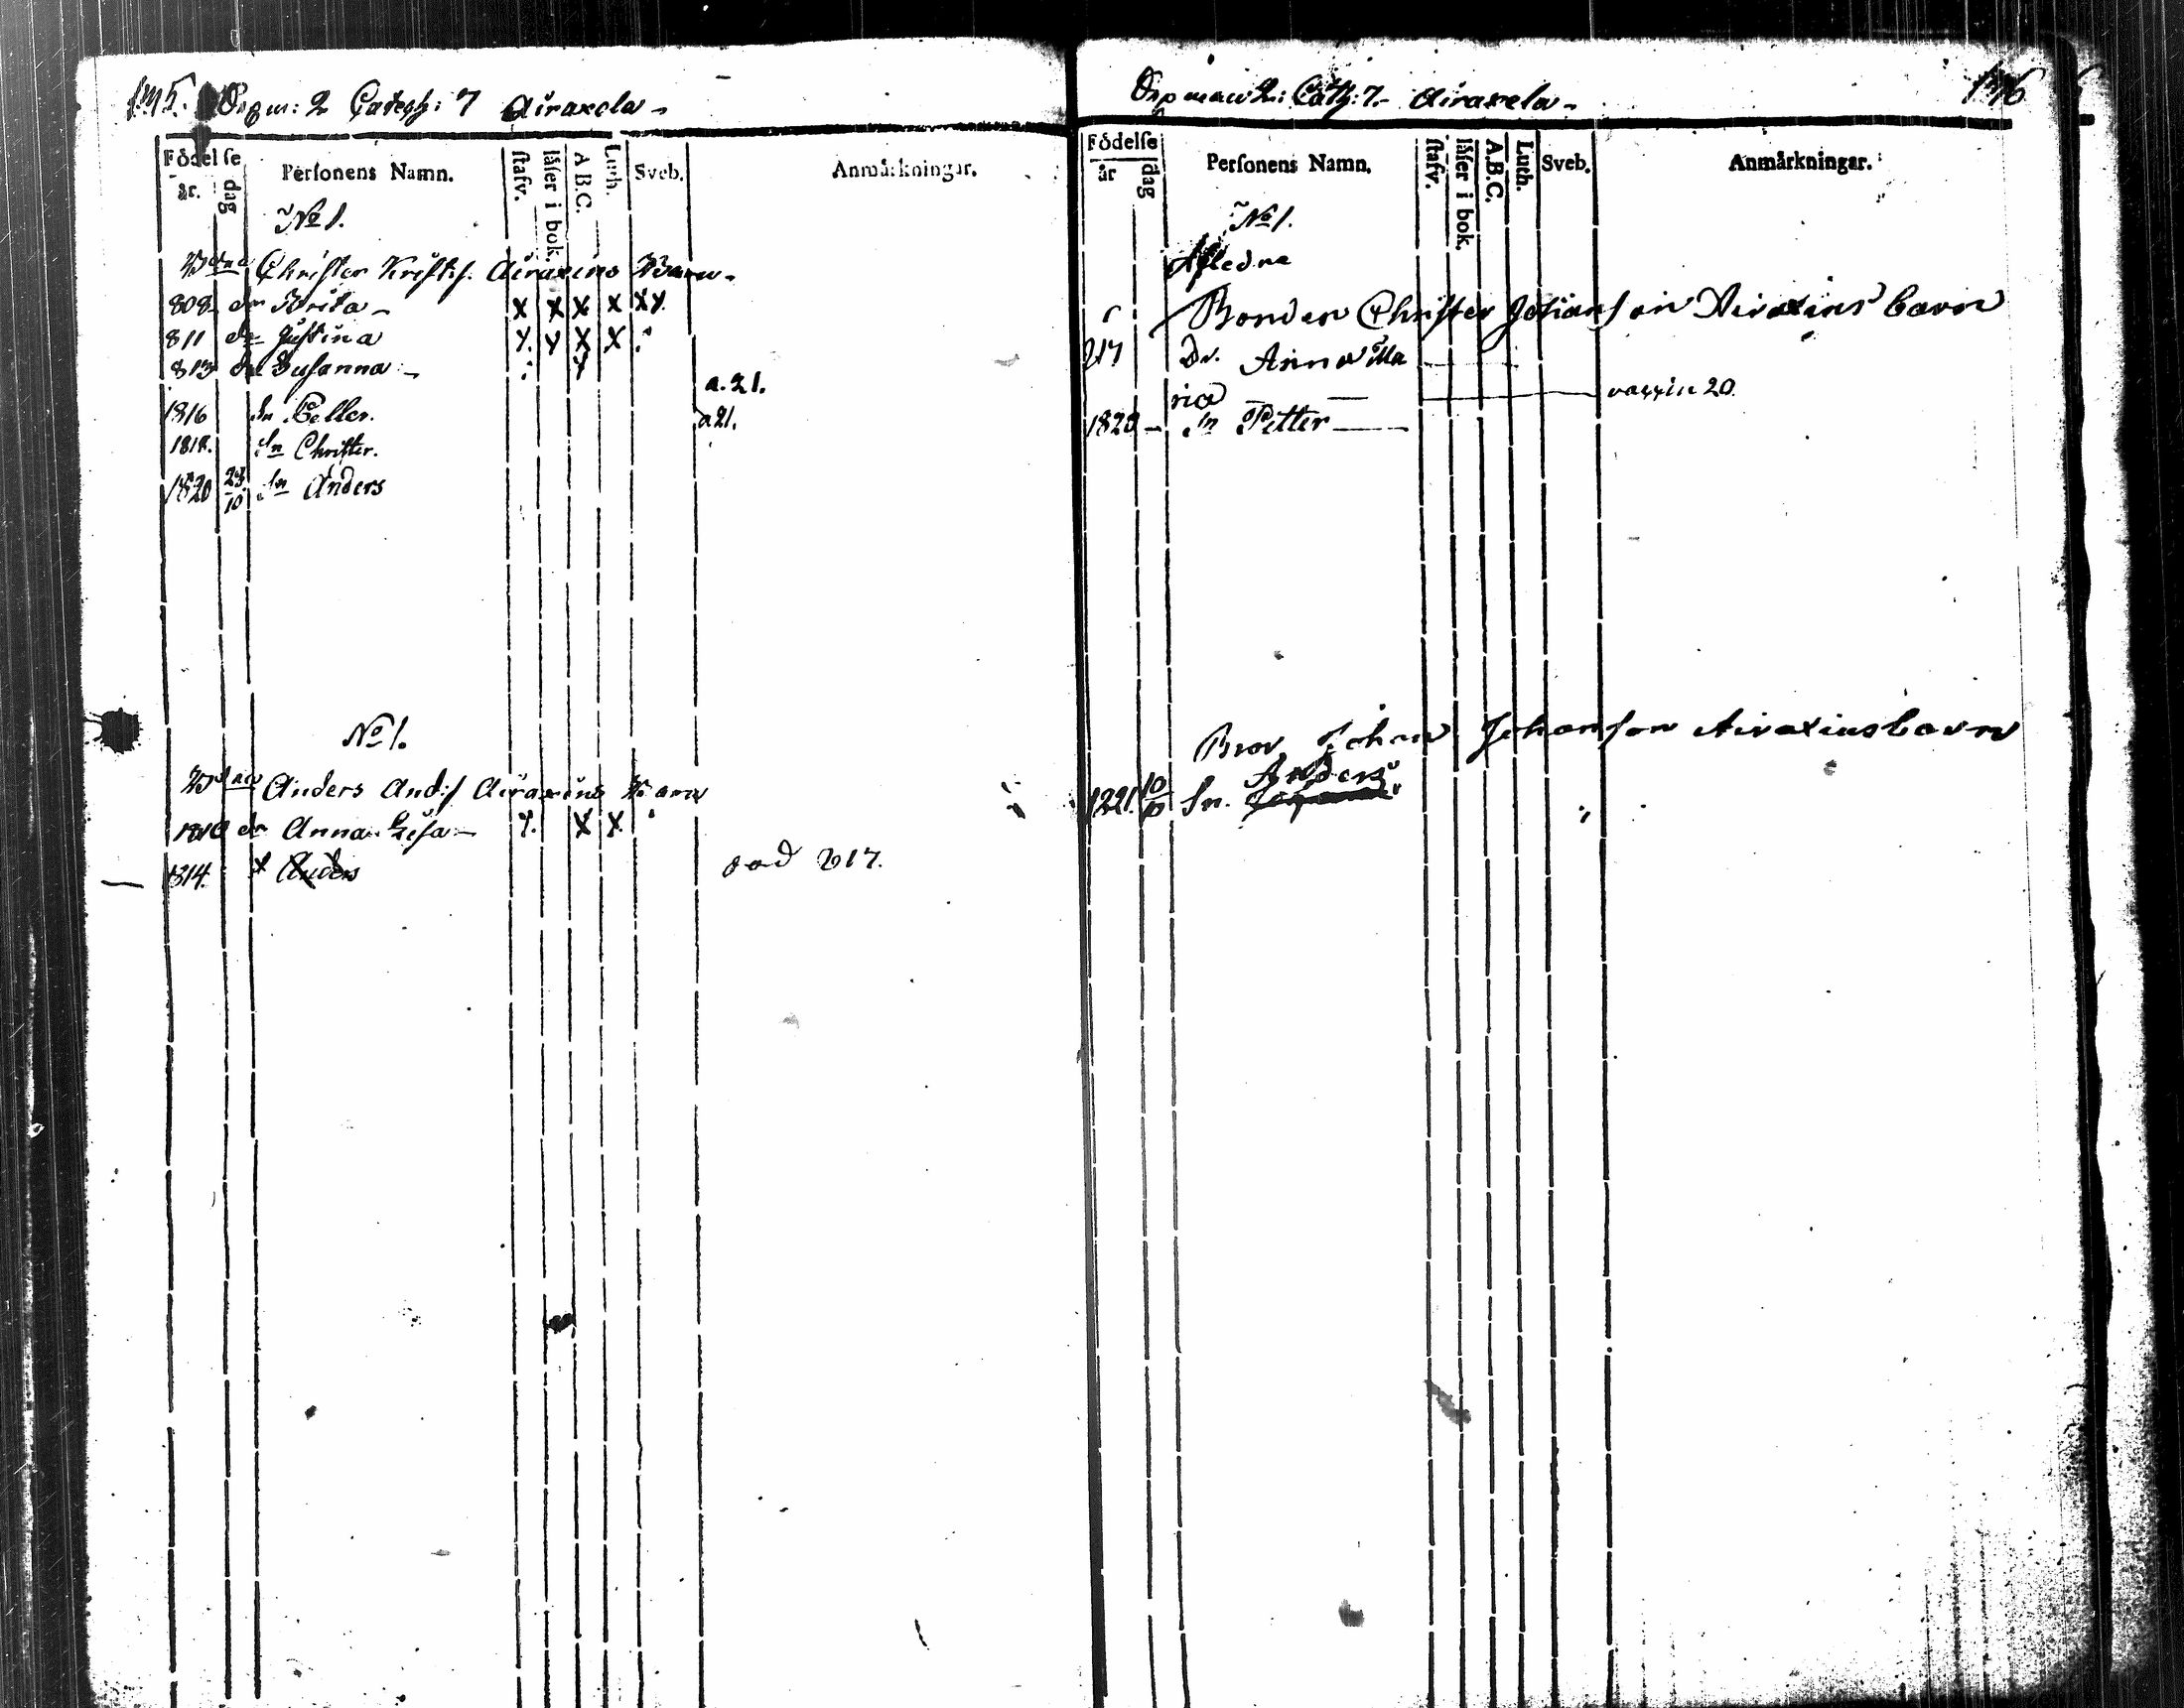 Cateqh: 7 Airaxela -
Födelse
år. dag
Personens Namn.
stafv.
läser i bok.
A B.C.
Luth.
Sveb.
Anmärkningar.
No 1.
Christer Airaxins Barn -
808 dr Brita - x x x x x y.
811 dr Justina y. y x x
813 dr Susanna -
a. 21.
1816 Sn Petter. a 21.
1818. Sn Christer.
1820 23/10 Sn Anders
No 1.
Anders And:s Airaxins Barn
1810 dr Anna Lisa - y. x x
1814. x Anders död 817.
2: Cath: 7. - Airaxela -
Födelse
år dag
Personens Namn.
stafv.
läser i bok.
A.B.C.
Luth.
Sveb.
Anmärkningar.
No 1.
Afledne
Bonden Christer Johanson Airaxins barn
817 Dr. Anna Ma
ria vaxxin 20.
1820 - Sn Petter
Bror Johan Johanson Airaxins barn
Anders
1821. 10/10 Sn.